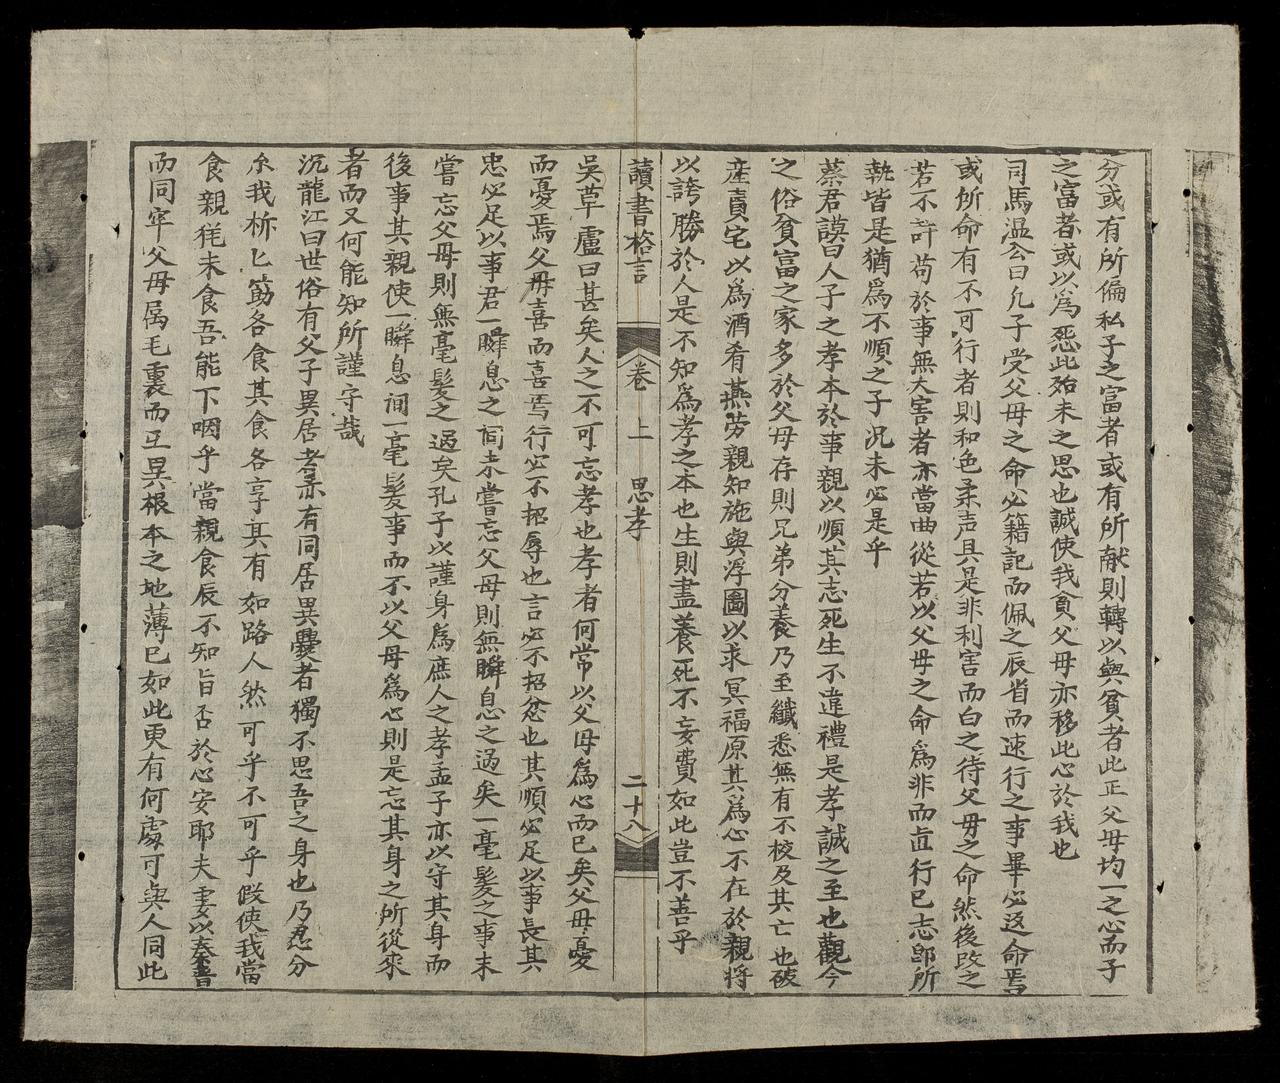 分或有所偏私子之富者或有所献則轉以與貧者此正父母均一之心而子
之富者或以爲怨此殆未之思也誠使我貧父母亦移此心於我也
司馬温公曰凡子受父母之命必籍記而佩之辰省而速行之事畢必返命焉
或所命有不可行者則和色柔声具是非利害而白之待父母之命然後改之
若不許苟於事無大害者亦當曲從若以父母之命爲非而直行己志即所
執皆是猶爲不順之子况未必是乎
蔡君謨曰人子之孝本於事親以順其志死生不違禮是孝誠之至也觀今
之俗貧富之家多於父母存則兄弟分養乃至纖悉無有不校及其亡也破
産賣宅以爲酒肴燕劳親知施與浮圖以求冥福原其爲心不在於親将
以誇勝於人是不知爲孝之本也生則盡養死不妄費如此豈不善乎
讀書格言 卷上 思孝 二十八
吳草廬曰甚矣人之不可忘孝也孝者何常以父母爲心而已矣父母憂
而憂焉父母喜而喜焉行必不招辱也言必不招忿也其順必足以事長其
忠必足以事君一瞬息之间未嘗忘父母則無瞬息之過矣一毫髮之事未
嘗忘父母則無毫髮之過矣孔子以謹身爲庶人之孝孟子亦以守其身而
後事其親使一瞬息间一毫髮事而不以父母爲心則是忘其身之所從來
者而又何能知所謹守哉
沉龍江曰世俗有父子異居者亦有同居異爨者獨不思吾之身也乃忍分
尔我析匕筯各食其食各享其有如路人然可乎不可乎假使我當
食親徃未食吾能下咽乎當親食辰不知旨否於心安耶夫妻以秦晋
而同牢父母属毛裏而乓異根本之地薄已如此更有何處可與人同此